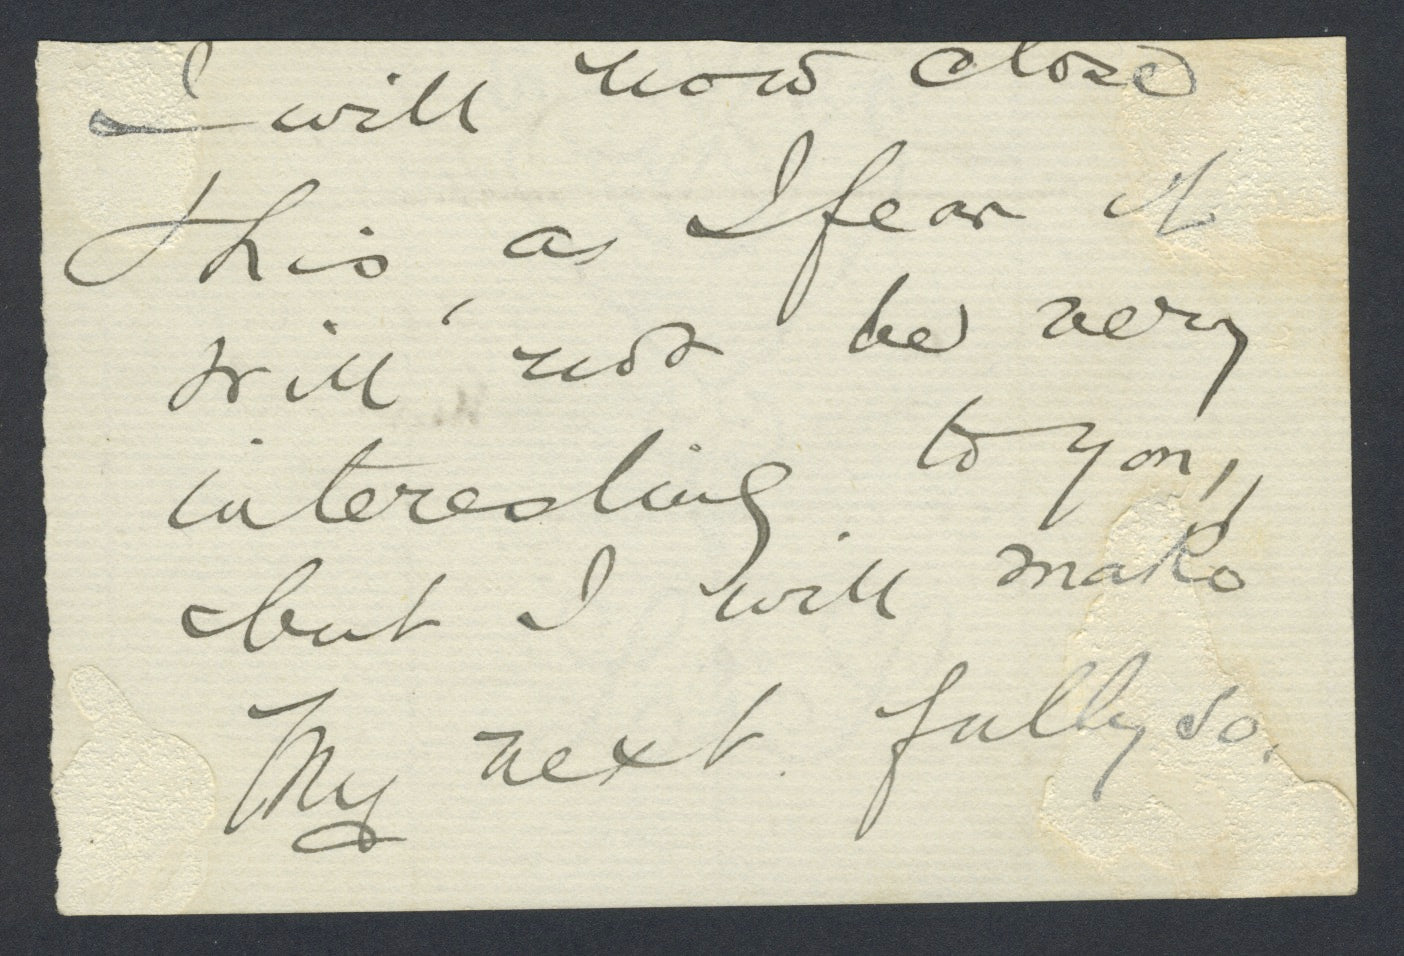 I will now close
this as I fear it
will not be very
interesting to you,
but I will make
My next fully so.